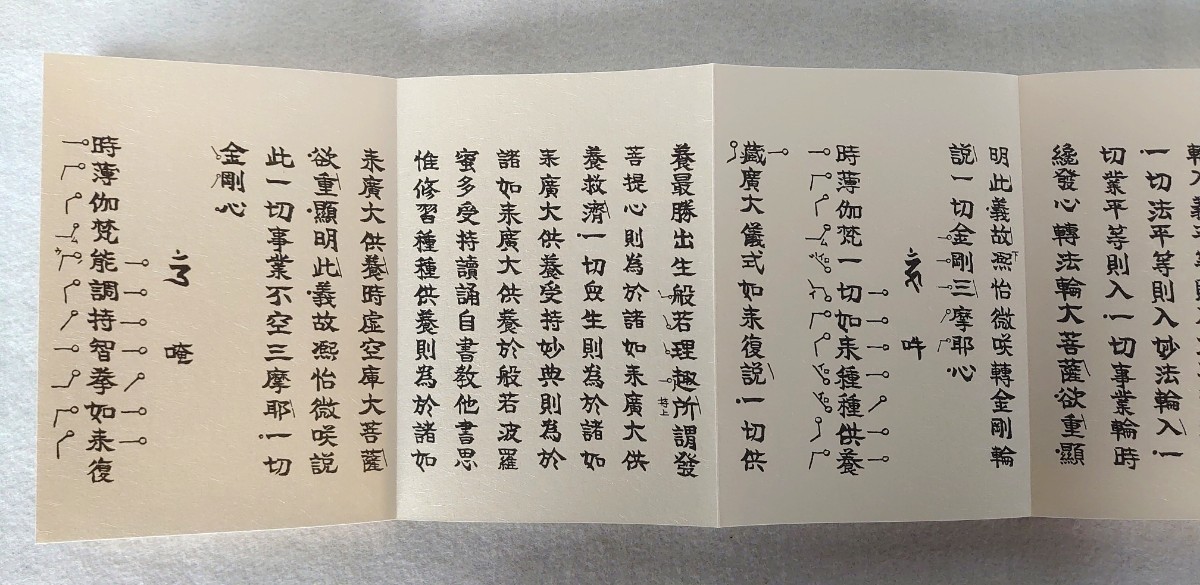 一切法平等則入妙法輪入一
切業平等則入一切事業輪時
纔發心轉法輪大菩薩欲重顯
明此義故凞怡微咲轉金剛輪
說一切金剛三摩耶心
吽
時薄伽梵一切如来種種供養
藏廣大儀式如来復說一切供
養最勝出生般若理趣所謂發
菩提心則為於諸如来廣大供
養救濟一切众生則為於諸如
来廣大供養受持妙典則為於
諸如来廣大供養於般若波羅
蜜多受持讀誦自書教他書思
惟修習種種供養則為於諸如
来廣大供養時虚空庫大菩薩
欲重顯明此義故凞怡微咲説
此一切事業不空三摩耶一切
金剛心
唵
時薄伽梵能調持智拳如来復